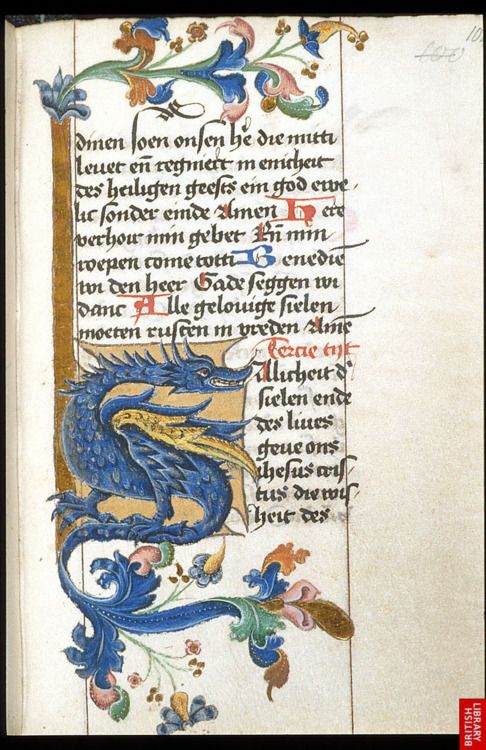 dinen soen onsen hẽ die mitti
levet en̄ regniert in enicheit
des heiligen geests ein god ewe-
lic sonder einde Amen Here
verhoir min gebet En̄ min
roepen come totti Benediẽ
wi den heer Gade seggen wi
danc Alle gelovige sielen
moeten rusten in vreden Amẽ
Tercie tijt
Salicheit d'
sielen ende
des lives
geve ons
ihesus cris-
tus die wis-
heit des
BRITISH
LIBRARY